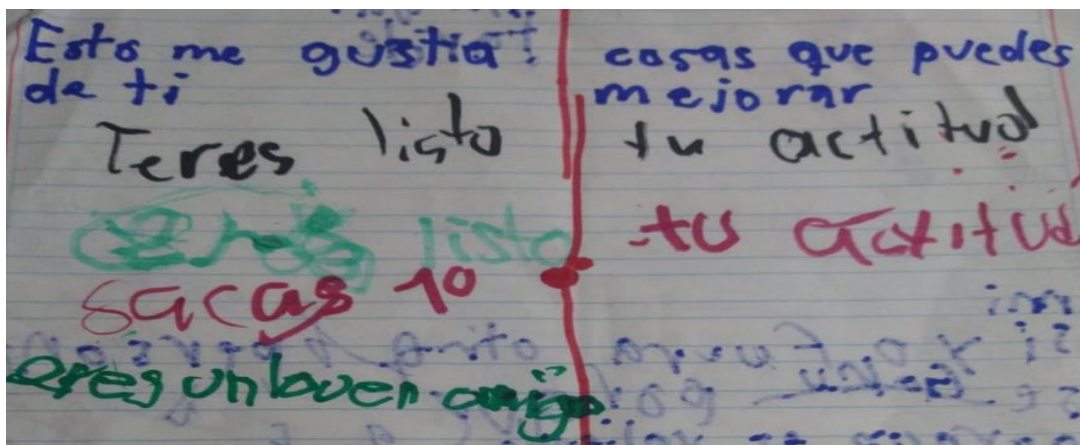 Esto me gustia!
de ti
Teres listo
eres listo
sacas 10
eres un buen amigo
cosas que puedes
mejorar
tu actitud
tu actitud